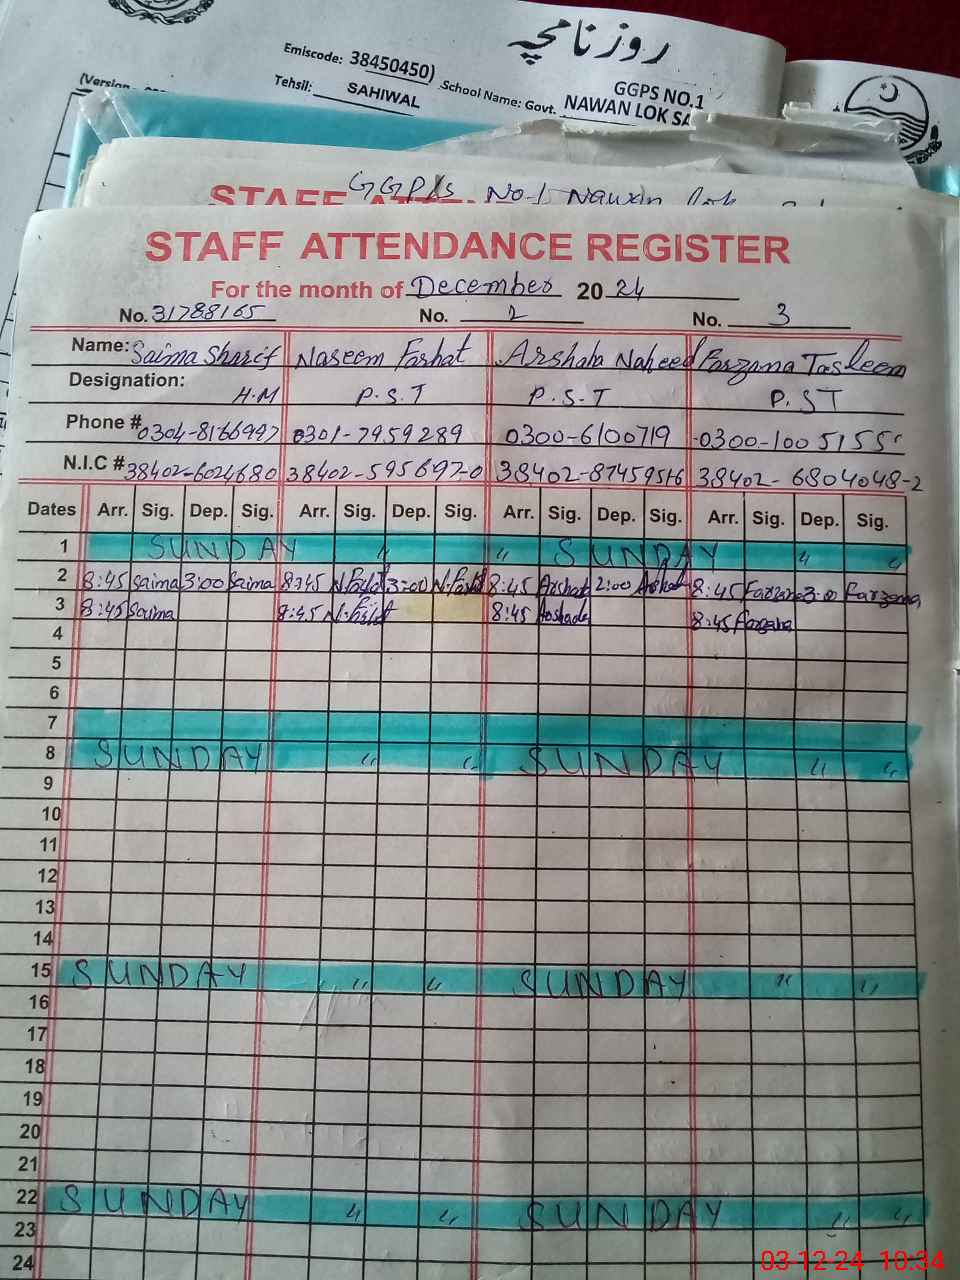 روزنامچہ
Emiscode: 38450450)
Tehsil: SAHIWAL
School Name: Govt.
GGPS NO.1
NAWAN LOK SA
(Version
STAFF
GGP/s No-1 Nawan Lok
STAFF ATTENDANCE REGISTER
For the month of December 20 24
No. 31788165 No. 2 No. 3
Name: Saima Sharif Naseem Farhat Arshaha Naheed Farzana Tasleem
Designation: H.M P.S.T P.S.T P.ST
Phone # 0304-8166997 0301-7959289 0300-6100719 0300-1005155
N.I.C # 38402-6024680 38402-5956920 38402-8745951-6 38402-6804048-2
Dates Arr. Sig. Dep. Sig. Arr. Sig. Dep. Sig. Arr. Sig. Dep. Sig. Arr. Sig. Dep. Sig.
1 SUNDAY " " SUNDAY " "
2 8:45 Saima 3:00 Saima 8:45 N.Farhat 3:00 N.Farhat 8:45 Arshad 2:00 Arshad 8:45 Farzana 3:00 Farzana
3 8:45 Saima 8:45 N.Farhat 8:45 Arshada 8:45 Farzana
4
5
6
7
8 SUNDAY " " SUNDAY " "
9
10
11
12
13
14
15 SUNDAY " " SUNDAY " "
16
17
18
19
20
21
22 SUNDAY " " SUNDAY " "
23
24
03-12-24 10:34